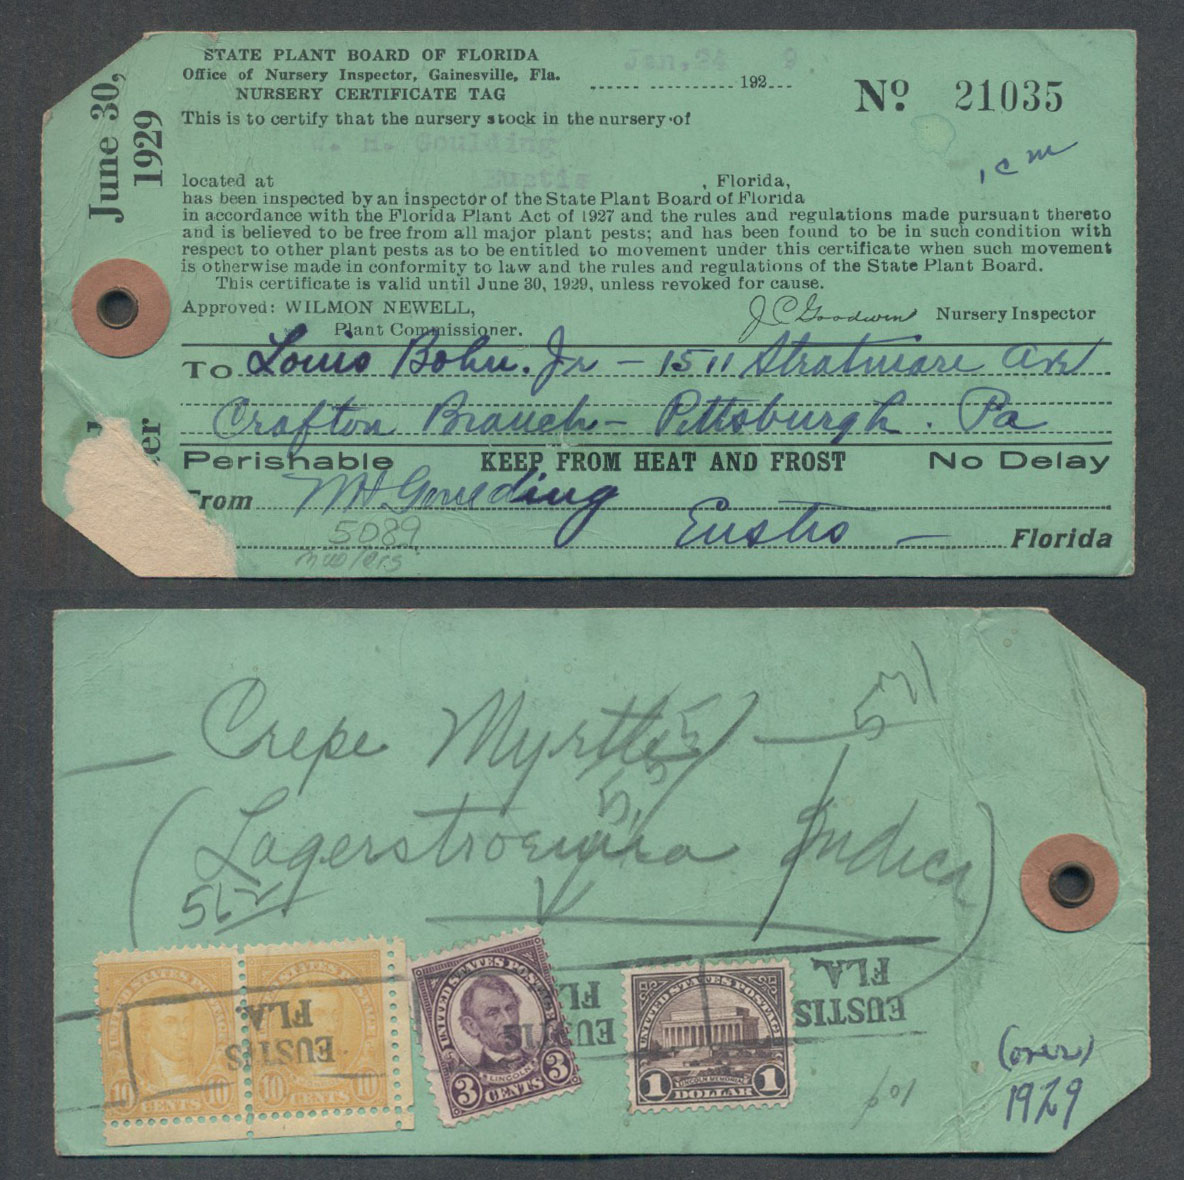 June 30,
1929
STATE PLANT BOARD OF FLORIDA
Office of Nursery Inspector, Gainesville, Fla.
NURSERY CERTIFICATE TAG
Jan. 24 9
192
No. 21035
This is to certify that the nursery stock in the nursery of
W. H. Goulding
located at Eustis, Florida,
has been inspected by an inspector of the State Plant Board of Florida
in accordance with the Florida Plant Act of 1927 and the rules and regulations made pursuant thereto
and is believed to be free from all major plant pests; and has been found to be in such condition with
respect to other plant pests as to be entitled to movement under this certificate when such movement
is otherwise made in conformity to law and the rules and regulations of the State Plant Board.
This certificate is valid until June 30, 1929, unless revoked for cause.
Approved: WILMON NEWELL,
Plant Commissioner.
J C Goodwin Nursery Inspector
To Louis Bohn. Jr - 1511 Stratmore Ave
Crafton Branch - Pittsburgh. Pa
Perishable KEEP FROM HEAT AND FROST No Delay
From Goulding
5089
Eustis - Florida
- Crepe Myrtle -
(Lagerstroemia Indica)
EUSTIS
FLA.
EUSTIS
FLA.
EUSTIS
FLA.
UNITED STATES POSTAGE
10 CENTS 10
UNITED STATES POSTAGE
10 CENTS 10
UNITED STATES POSTAGE
LINCOLN
3 CENTS 3
UNITED STATES POSTAGE
LINCOLN MEMORIAL
1 DOLLAR 1
(over)
1929